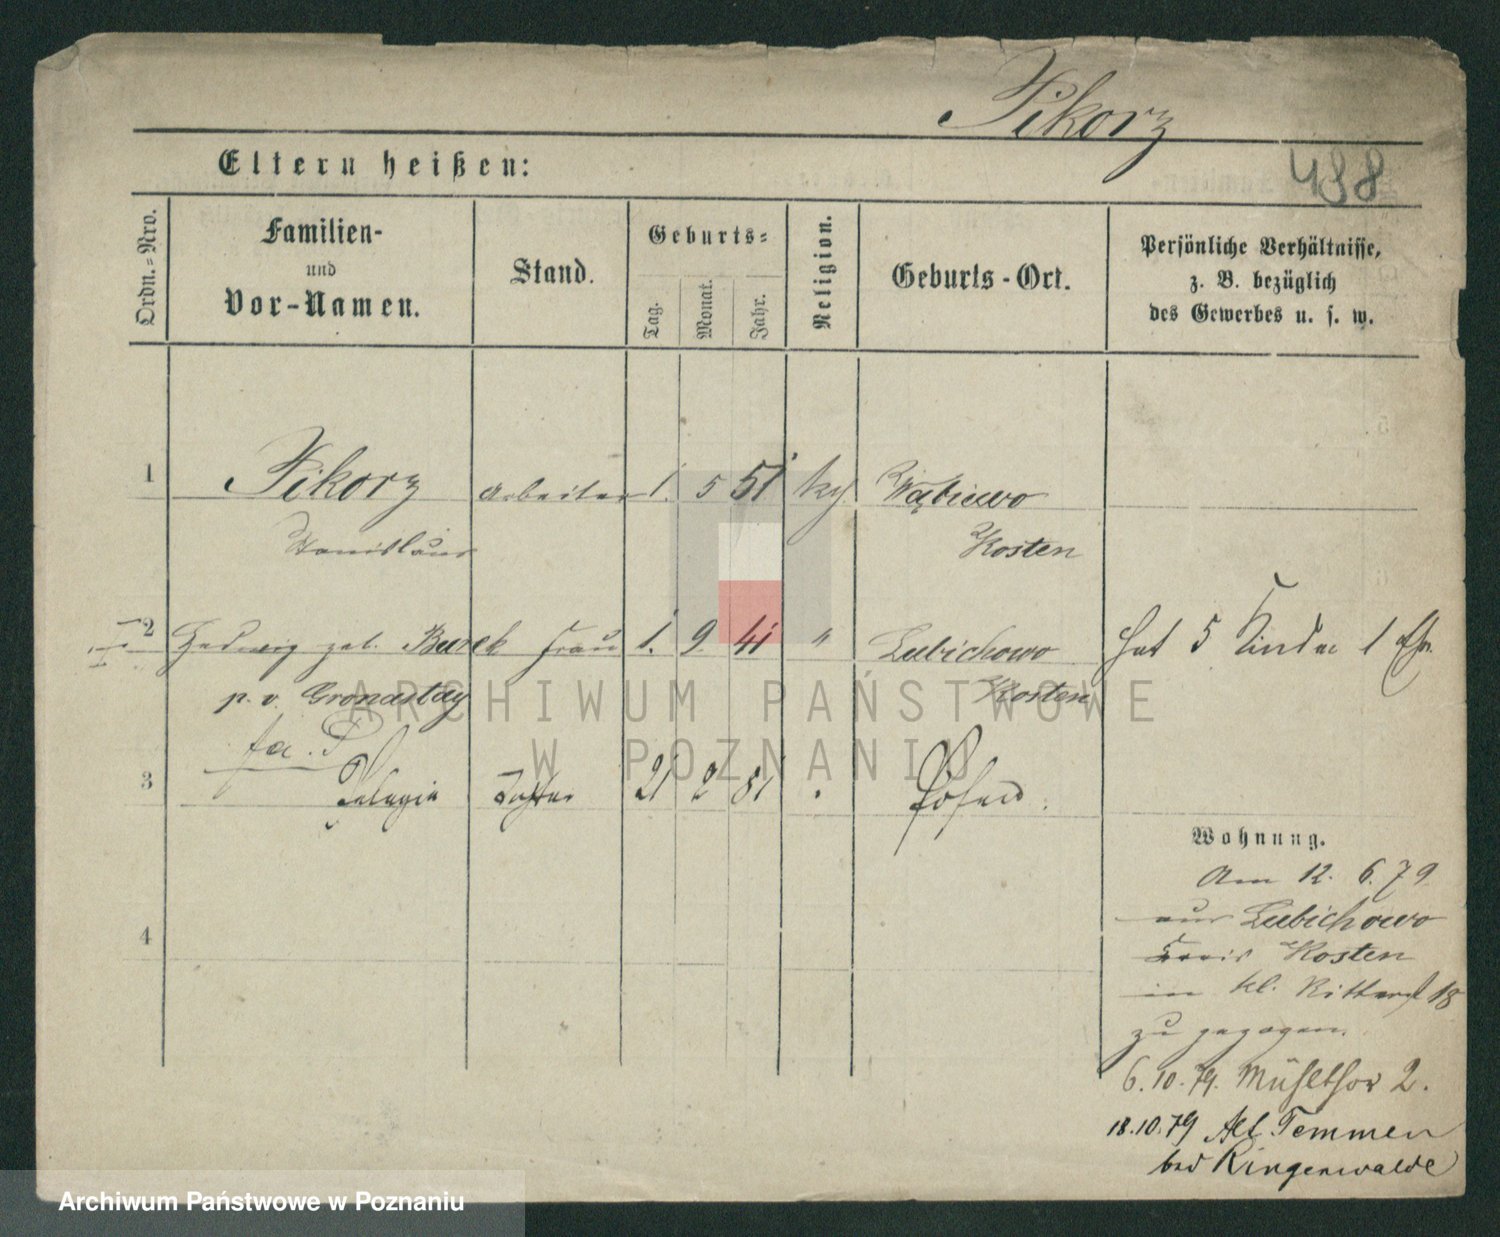 Pikorz
Eltern heißen:
498
Ordn.-Nro.
Familien-
und
Vor-Namen.
Stand.
Geburts-
Tag.
Monat.
Jahr.
Religion.
Geburts-Ort.
Persönliche Verhältnisse,
z. B. bezüglich
des Gewerbes u. s. w.
1 Pikorz Arbeiter 1. 5 51 Wąbiewo
Stanislaus Kosten
2 Hedwig geb. Burek Frau 1. 9. 41 " Lubichowo hat 5 Kinder 1
p. v. Gronastay Kosten
fa. P
3 Pelagia Tochter 21 2 81 Posen.
4
Wohnung.
Am 12. 6. 79
aus Lubichowo
Kreis Kosten
in kl. Ritterst 18
zu gezogen.
6.10.79. Mühlthor 2.
18.10.79 Alt Temmen
bei Ringenwalde
ARCHIWUM PAŃSTWOWE
W POZNANIU
Archiwum Państwowe w Poznaniu